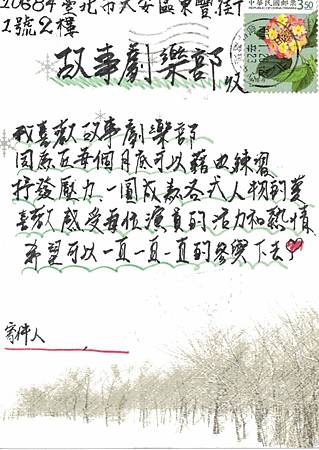 10684臺北市大安區東豐街
1號2樓
故事劇樂部 收
中華民國郵票
3.50
我喜歡故事劇樂部
因為在每個月底可以藉由練習
抒發壓力、一圓成為各式人物的夢
喜歡感受每位演員的活力和熱情
希望可以一直一直一直的參與下去
寄件人